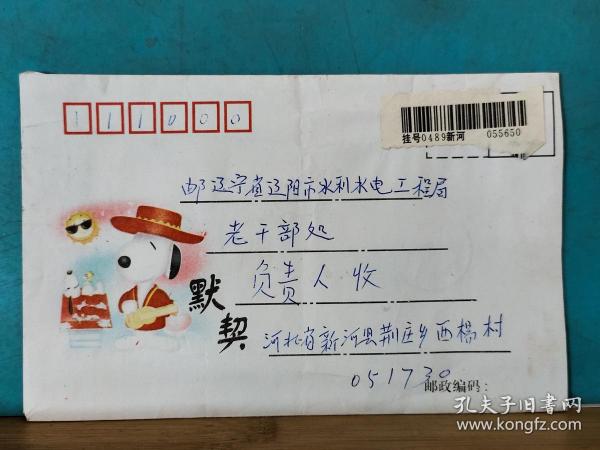 111000
挂号0489新河 055650
邮辽宁省辽阳市水利水电工程局
老干部处
负责人收
默契
河北省新河县荆庄乡西杨村
051730
邮政编码:
孔夫子旧书网
www.kongfz.com